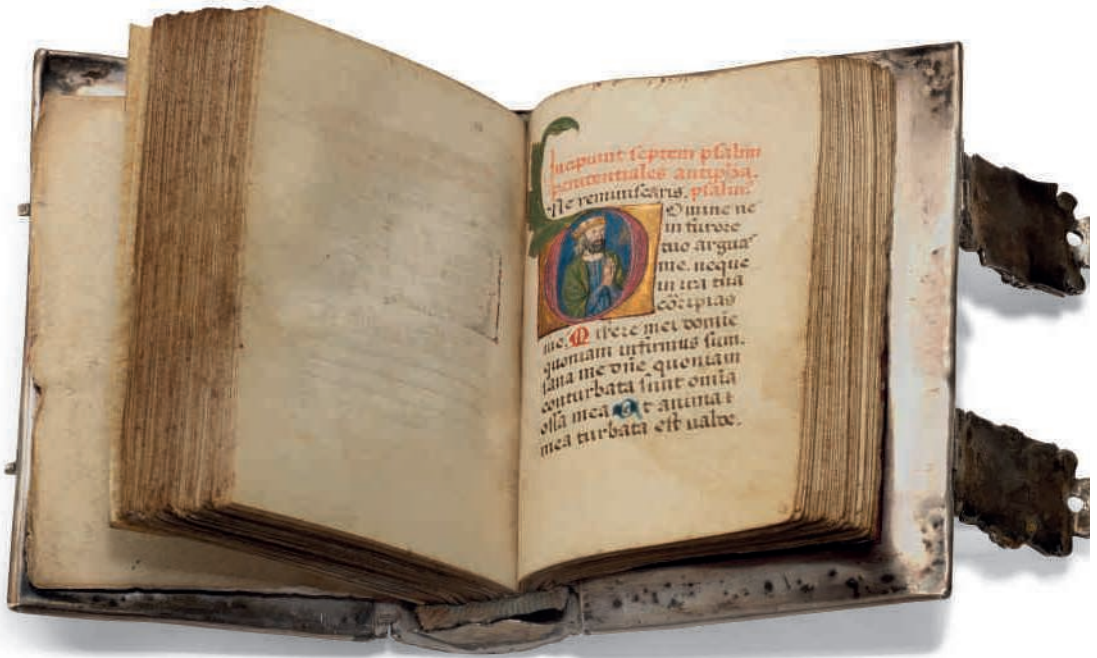 Incipiunt septem psalmi
penitentiales antipha.
Ne reminiscaris. psalmꝰ
Domine ne
in furore
tuo arguaˢ
me. neque
in ira tua
cōripias
me. Miserere mei domie
quoniam infirmus sum.
sana me dn̄e quoniam
conturbata sunt om̄ia
ossa mea Et anima
mea turbata est ualde.